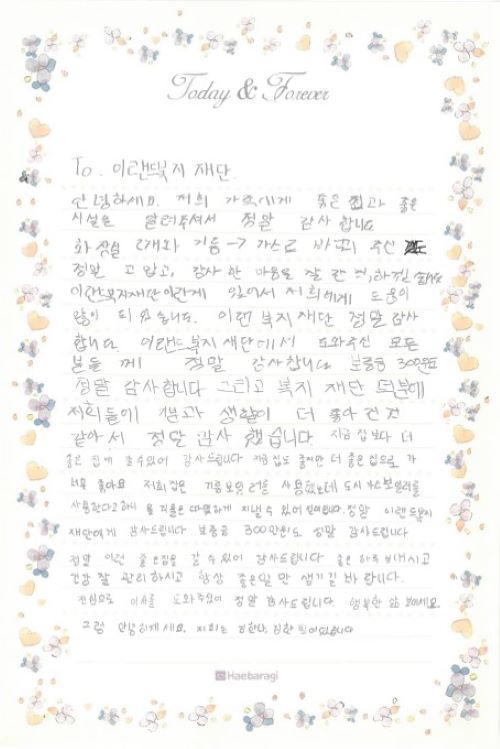 Today & Forever
To. 이랜드복지 재단.
안녕하세요. 저희 가족에게 좋은 집과 좋은
시설을 알려주셔서 정말 감사 합니다
화장실 2개와 기름 → 가스로 바꿔 주신
정말 고맙고, 감사한 마음을
이랜드복지재단이란게 있어서 저희에게 도움이
많이 되었습니다. 이랜드 복지 재단 정말 감사
합니다. 이랜드복지 재단에서 도와주신 모든
분들 께 정말 감사합니다 보증금 300만원도
정말 감사합니다 그리고 복지 재단 덕분에
저희들의 기분과 생활이 더 좋아진 것
같아서 정말 감사 했습니다 지금 집 보다 더
좋은 집에 갈 수 있어 감사드립니다 지금 집도 좋지만 더 좋은 집으로 가
너무 좋아요 저희 집은 기름보일러를 사용했는데 도시가스보일러를
사용한다고하니 올 겨울은 따뜻하게 지낼 수 있어 정말 이랜드복지
재단에게 감사드립니다 보증금 300만원도 정말 감사드립니다
정말 이런 좋은집을 갈 수 있어 감사드립니다 좋은 하루 보내시고
건강 잘 관리하시고 항상 좋은일 만 생기길 바랍니다.
진심으로 이사를 도와주셔서 정말 감사드립니다. 행복한 삶 보내세요.
그럼 안녕히계세요. 저희는
Haebaragi